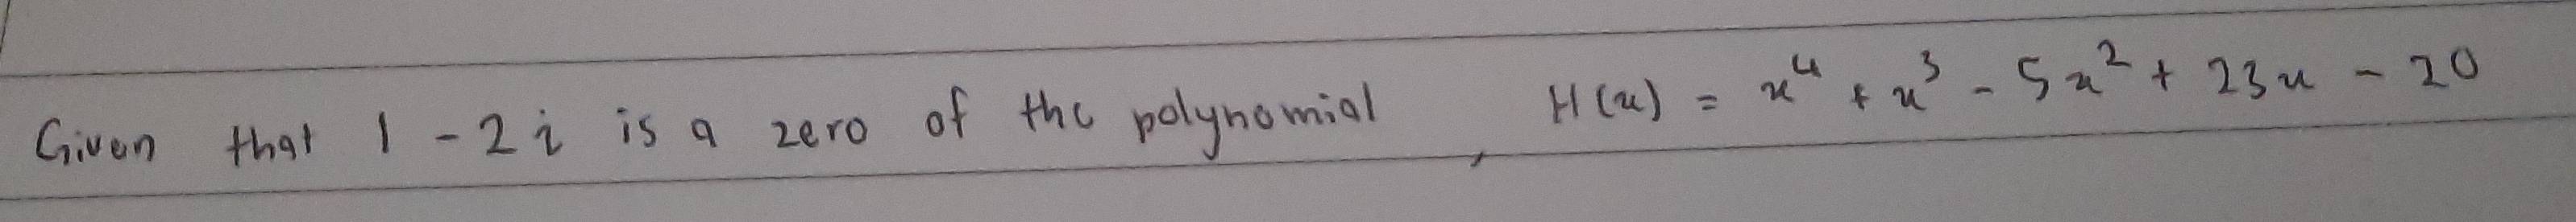 Given that 1 - 2i is a zero of the polynomial, H(x) = x⁴ + x³ - 5x² + 23x - 20